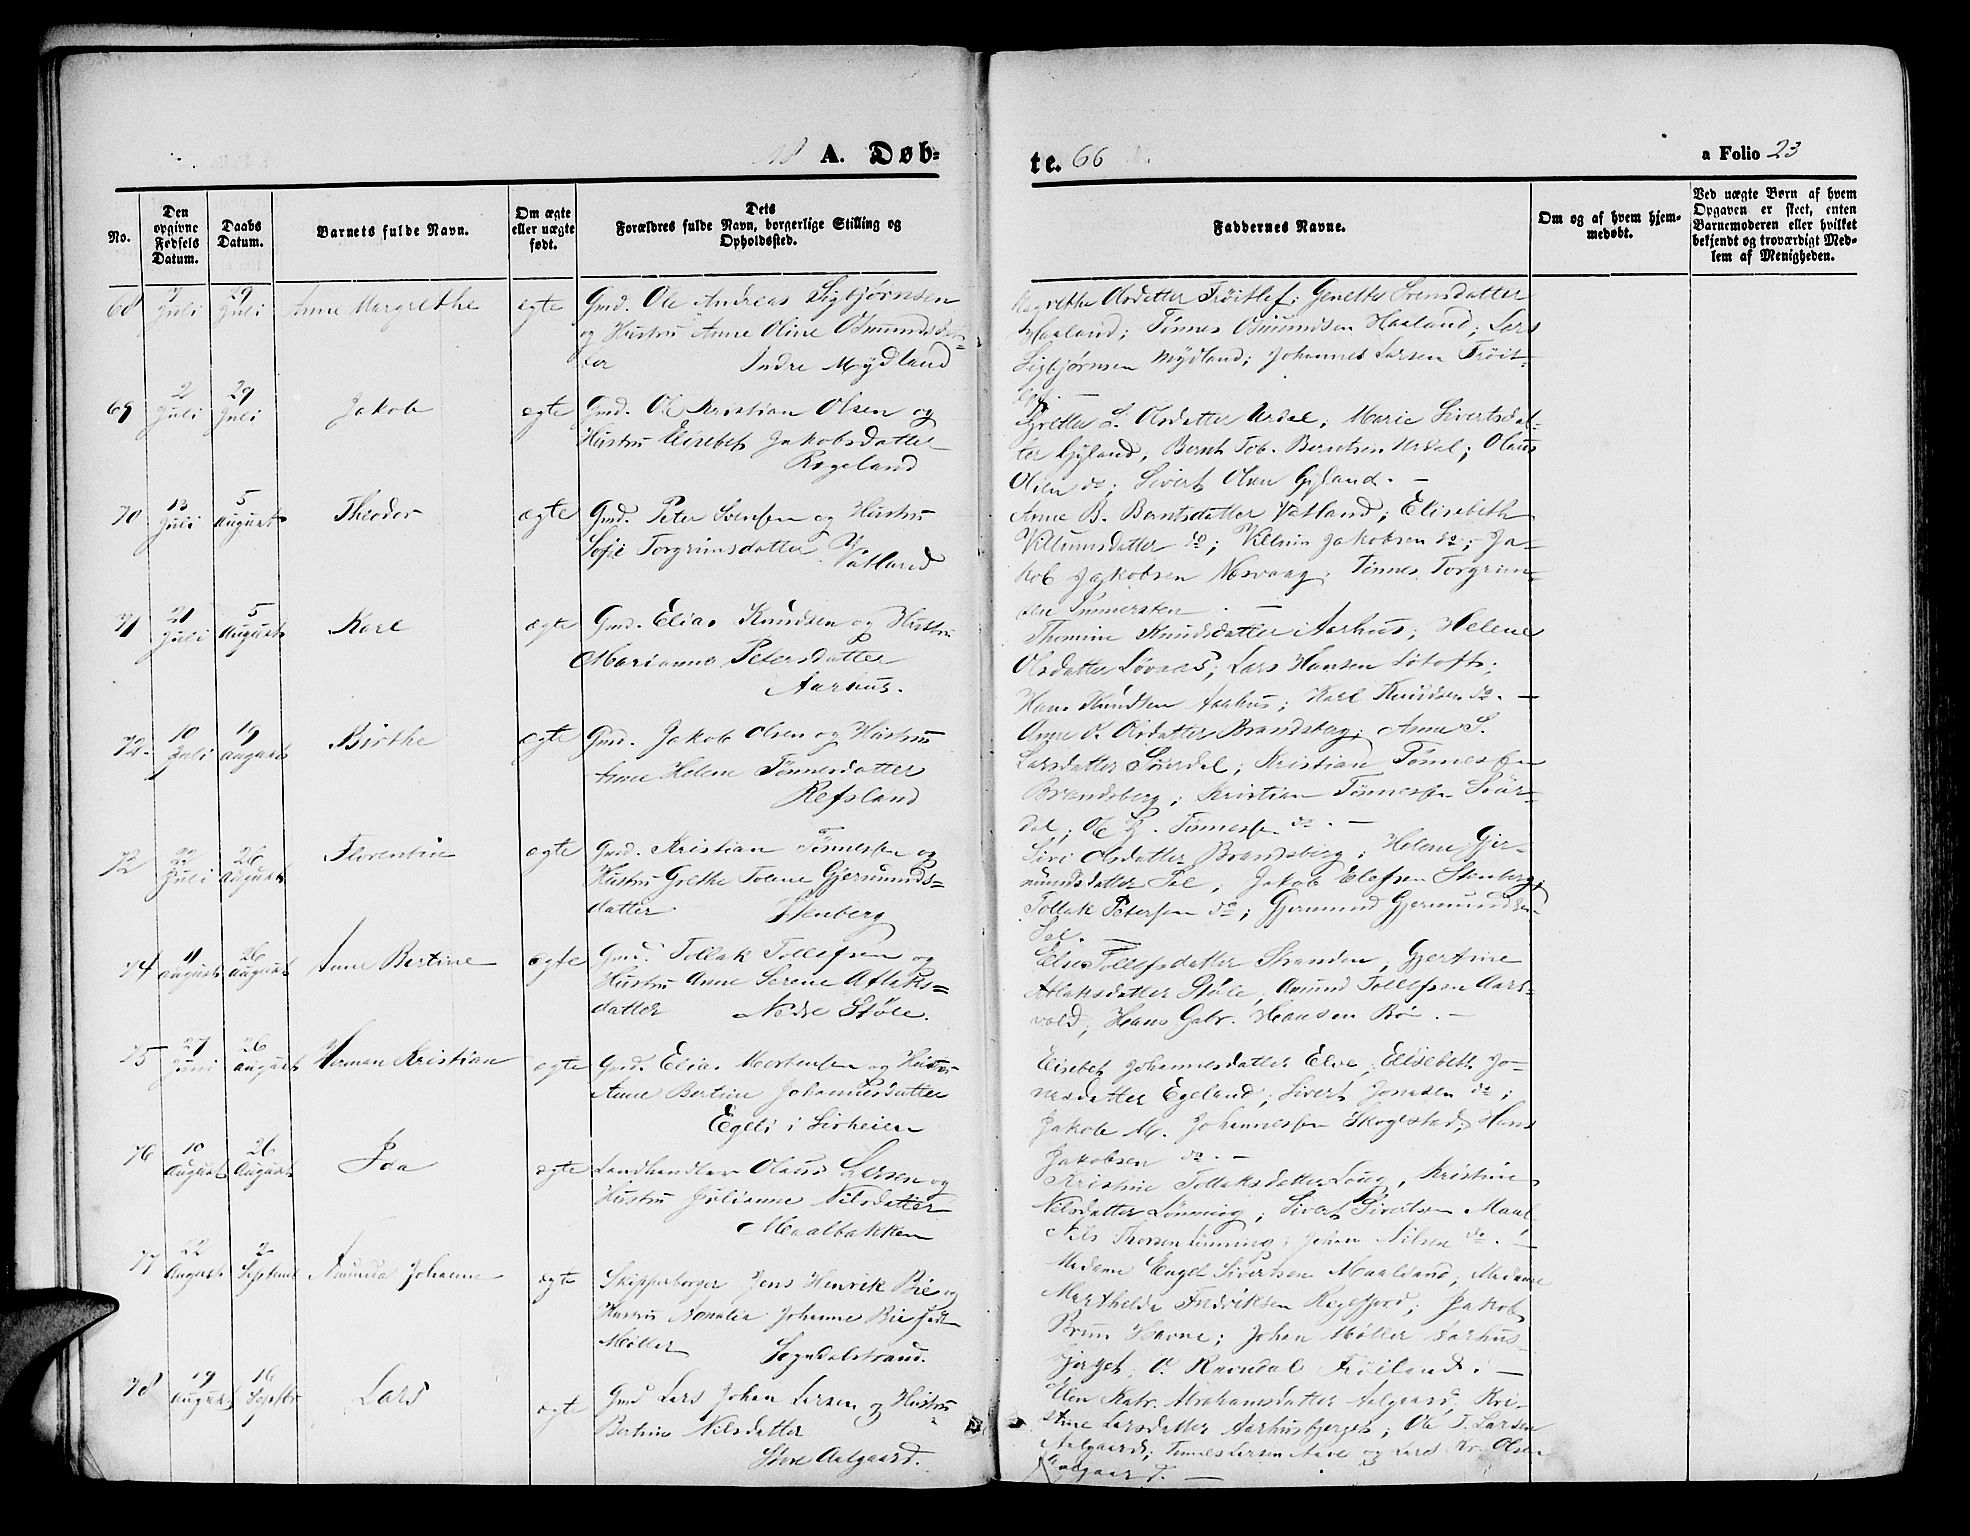 18 A. Døb-
te. 66
a Folio 23
No.
Den opgivne Fødsels Datum.
Daabs Datum.
Barnets fulde Navn.
Om ægte eller uægte født.
Dets Forældres fulde Navn, borgerlige Stilling og Opholdssted.
Faddernes Navne.
Om og af hvem hjem-
medøbt.
Ved uægte Børn af hvem
Opgaven er skeet, enten
Barnemoderen eller hvilket
bekjendt og troværdigt Med-
lem af Menigheden.
68 9 Juli 29 Juli Anne Margrethe ægte Gmd. Ole Andreas Sigbjørnsen
og Hustru Anne Oline Osmundsdat-
ter Indre Mydland
Magrethe Olsdatter Frøitlef; Genette Svensdatter
Haaland; Tønnes Osmundsen Haaland; Lars
Sigbjørnsen Mydland; Johannes Larsen Frøit-
lef. —
69 2 Juli 29 Juli Jakob ægte Gmd. Ole Kristian Olsen og
Hustru Elisebet Jakobsdatter
Rægeland
Grethe S. Olsdatter Urdal; Marie Sivertsdat-
ter Gyland, Bernt Tob. Berntsen Urdal; Olaus
Olsen do; Sivert Olsen Gyland. —
70 13 Juli 5 August Theodor ægte Gmd. Peter Svensen og Hustru
Sofie Torgrimsdatter
Vatland
Anne B. Berntsdatter Vatland; Elisebeth
Villumsdatter do; Villum Jakobsen do; Ja-
kob Jakobsen Nesvaag; Tønnes Torgrim-
sen Immersten. —
71 21 Juli 5 August Karl ægte Gmd. Elias Knudsen og Hustru
Marianne Petersdatter
Aarhus.
Thomine Knudsdatter Aarhus; Helene
Olsdatter Løvaas; Lars Hansen Løtoft;
Hans Knudsen Aarhus; Karl Knudsen do. —
72. 10 Juli 19 August Birthe ægte Gmd. Jakob Olsen og Hustru
Anne Helene Tønnesdatter
Refsland
Anne K. Olsdatter Brandsberg; Anne S.
Larsdatter Søirdal; Kristian Tønnessen
Brandsberg; Kristian Tønnessen Søir-
dal; Ole Tønnessen do. —
72 22 Juli 26 August Florentine ægte Gmd. Kristian Tønnessen og
Hustru Grethe Tolene Gjermunds-
datter Stenberg
Siri Olsdatter Brandsberg; Helene Gjer-
mundsdatter Sel; Jakob Elefsen Stenberg;
Tollak Petersen do; Gjermund Gjermundsen
Sel. —
74 11 August 26 August Anne Bertine ægte Gmd. Tollak Tollefsen og
Hustru Anne Serene Atlaks-
datter Nedre Støle.
Else Tollefsdatter Stranden, Gjertine
Atlaksdatter Støle, Amund Tollefsen Aars-
vold, Hans Gabr. Hansen Bø. —
75 27 Juni 26 August Herman Kristian ægte Gmd. Elias Mortensen og Hustru
Anne Bertine Johannesdatter
Egeli i Sirheien
Elisebet Johannesdatter Elve, Elisebeth Jo-
nasdatter Egeland; Sivert Jonasen do;
Jakob M. Johannessen Skogestad, Hans
Jakobsen do. —
76 10 August 26 August Ida ægte Landhandler Olaus Larsen og
Hustru Julianne Nilsdatter
Maalbakken
Kristine Tollaksdatter Loug, Kristine
Nilsdatter Lønning; Sivert Sivertsen Maal
Nils Thorsen Lønning; Johan Nilsen do. —
77 22 August 2 Septembr Amanda Johanne ægte Skipperborger Jens Henrik Bie og
Hustru Amalia Johanne Bie født
Møller Sogndalstrand.
Madame Engel Sivertsen Maalsand; Madame
Marthelde Fredriksen Regefjord; Jakob
Bruun Havne; Johan Møller Aarhus-
bjerget, O. Ravndal Frøiland. —
78 19 August 16 Septbr Lars ægte Gmd Lars Johan Larsen og Hustru
Bertine Nilsdatter
Store Aalgaard.
Elen Katr. Abrahamsdatter Aalgaard, Kri-
stine Larsdatter Aarhusbjerget; Ole T. Larsen
Aalgaard; Tønnes Larsen Aase og Lars Kr. Olsen
Aalgaard. —